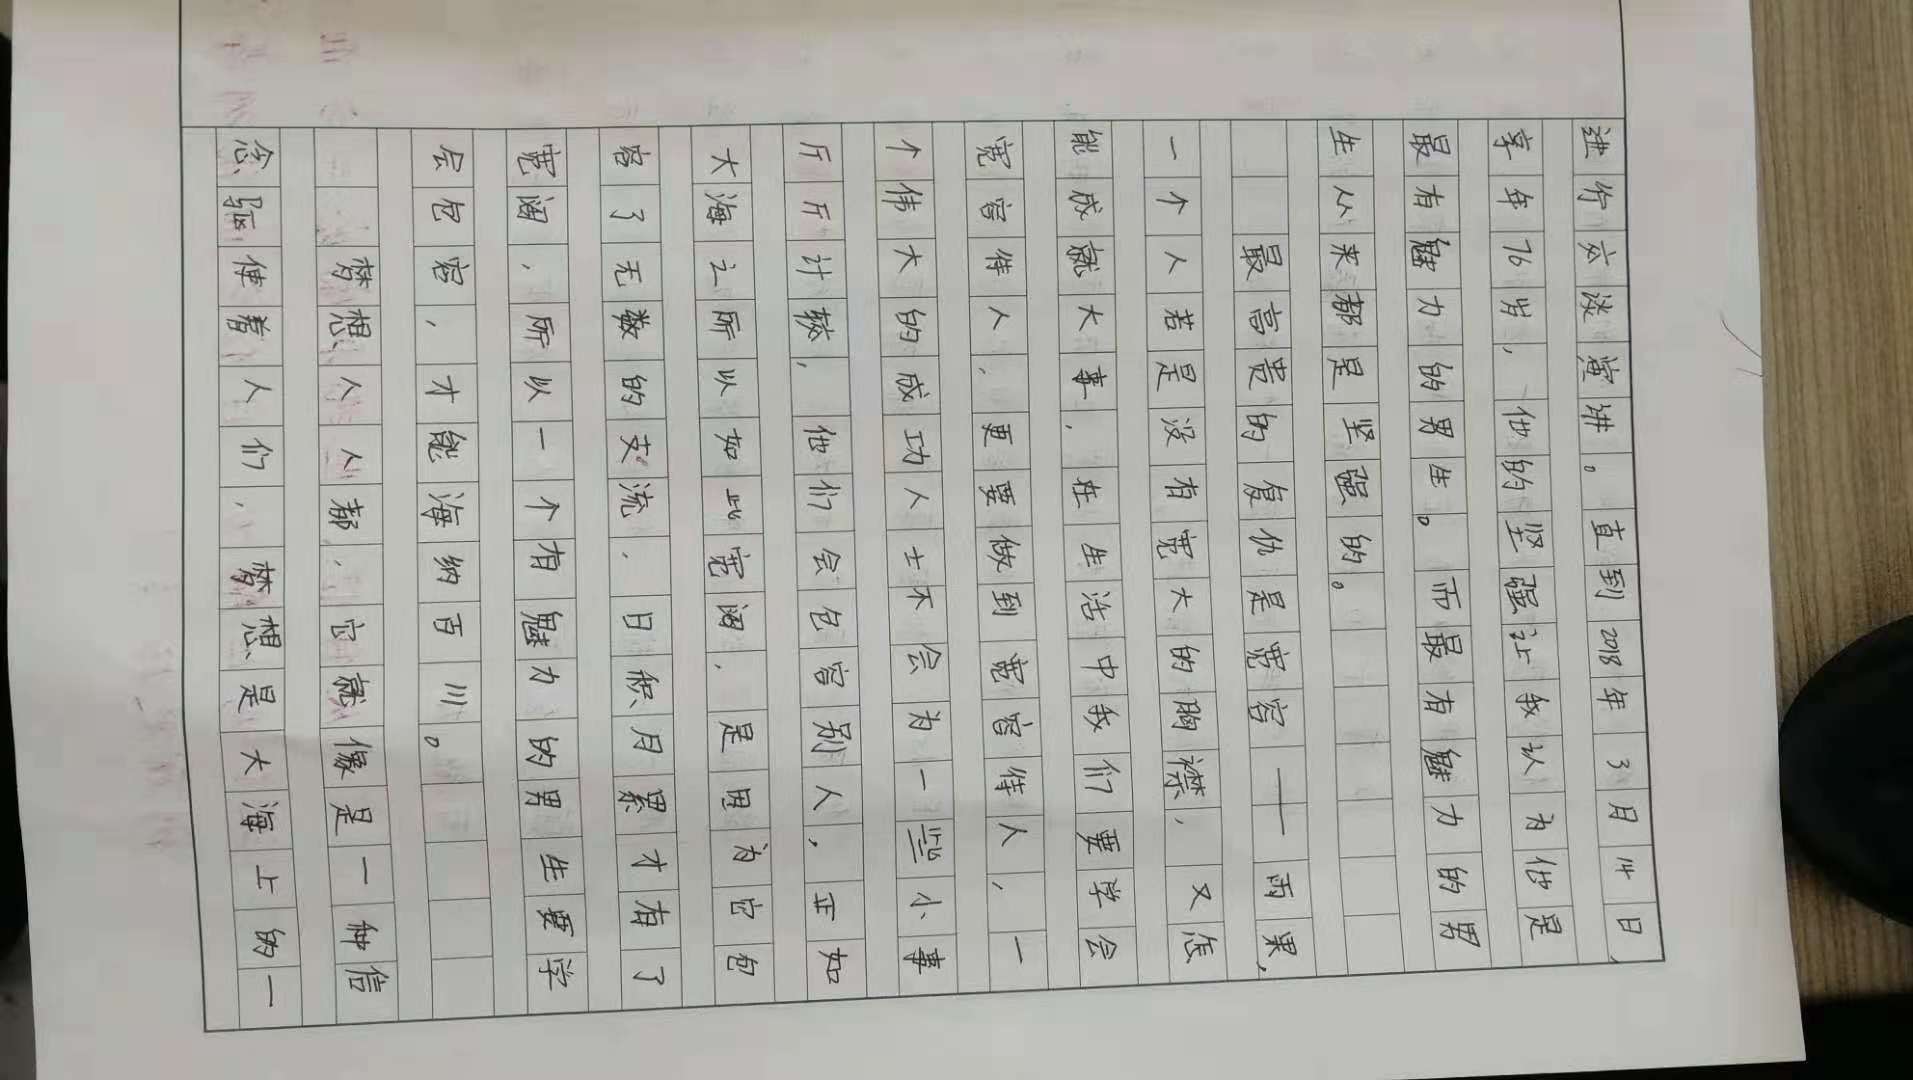 进行交谈演讲。直到2018年3月14日,
享年76岁，他的坚强让我认为他是
最有魅力的男生。而最有魅力的男
生从来都是坚强的。
最高贵的复仇是宽容——雨果,
一个人若是没有宽大的胸襟，又怎
能成就大事，在生活中我们要学会
宽容待人，更要做到宽容待人，一
个伟大的成功人士不会为一些小事
斤斤计较，他们会包容别人，正如
大海之所以如此宽阔，是因为它包
容了无数的支流，日积月累才有了
宽阔，所以一个有魅力的男生要学
会包容，才能海纳百川。
梦想人人都，它就像是一种信
念驱使着人们，梦想是大海上的一